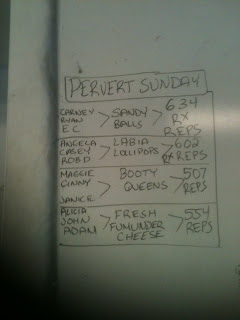 PERVERT SUNDAY
CARNEY
RYAN > SANDY BALLS > 634 RX REPS
E.C.
ANGELA
CASEY > LABIA LOLLIPOPS > 602 RX REPS
ROB D
MAGGIE
GINNY > BOOTY QUEENS > 507 REPS
JANICE
ALICIA
JOHN > FRESH FUMUNDER CHEESE > 554 REPS
ADAM